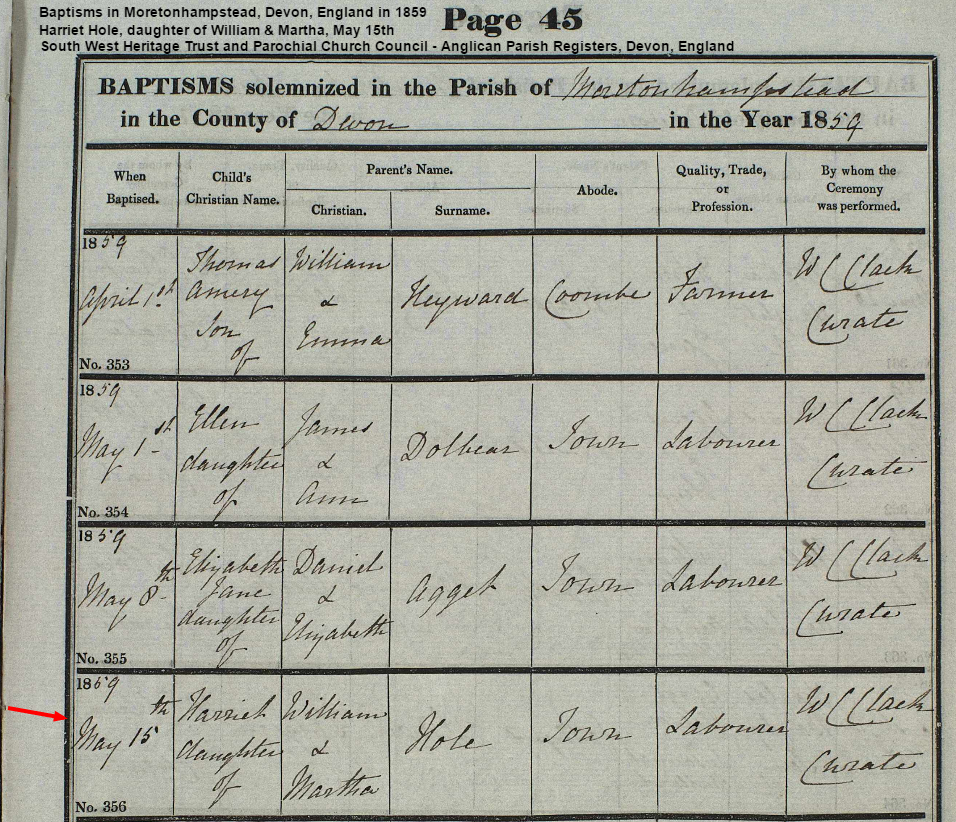 Baptisms in Moretonhampstead, Devon, England in 1859
Page 45
Harriet Hole, daughter of William & Martha, May 15th
South West Heritage Trust and Parochial Church Council - Anglican Parish Registers, Devon, England
BAPTISMS solemnized in the Parish of Moretonhampstead
in the County of Devon in the Year 1859
When Baptised.
Child's Christian Name.
Parent's Name.
Christian.
Surname.
Abode.
Quality, Trade, or Profession.
By whom the Ceremony was performed.
1859
April 1st
No. 353
Thomas
Amery
Son
of
William
&
Emma
Heyward
Coombe
Farmer
W C Clack
Curate
1859
May 1st
No. 354
Ellen
daughter
of
James
&
Ann
Dolbear
Town
Labourer
W C Clack
Curate
1859
May 8th
No. 355
Elizabeth
Jane
daughter
of
Daniel
&
Elizabeth
Agget
Town
Labourer
W C Clack
Curate
1859
May 15th
No. 356
Harriet
daughter
of
William
&
Martha
Hole
Town
Labourer
W C Clack
Curate